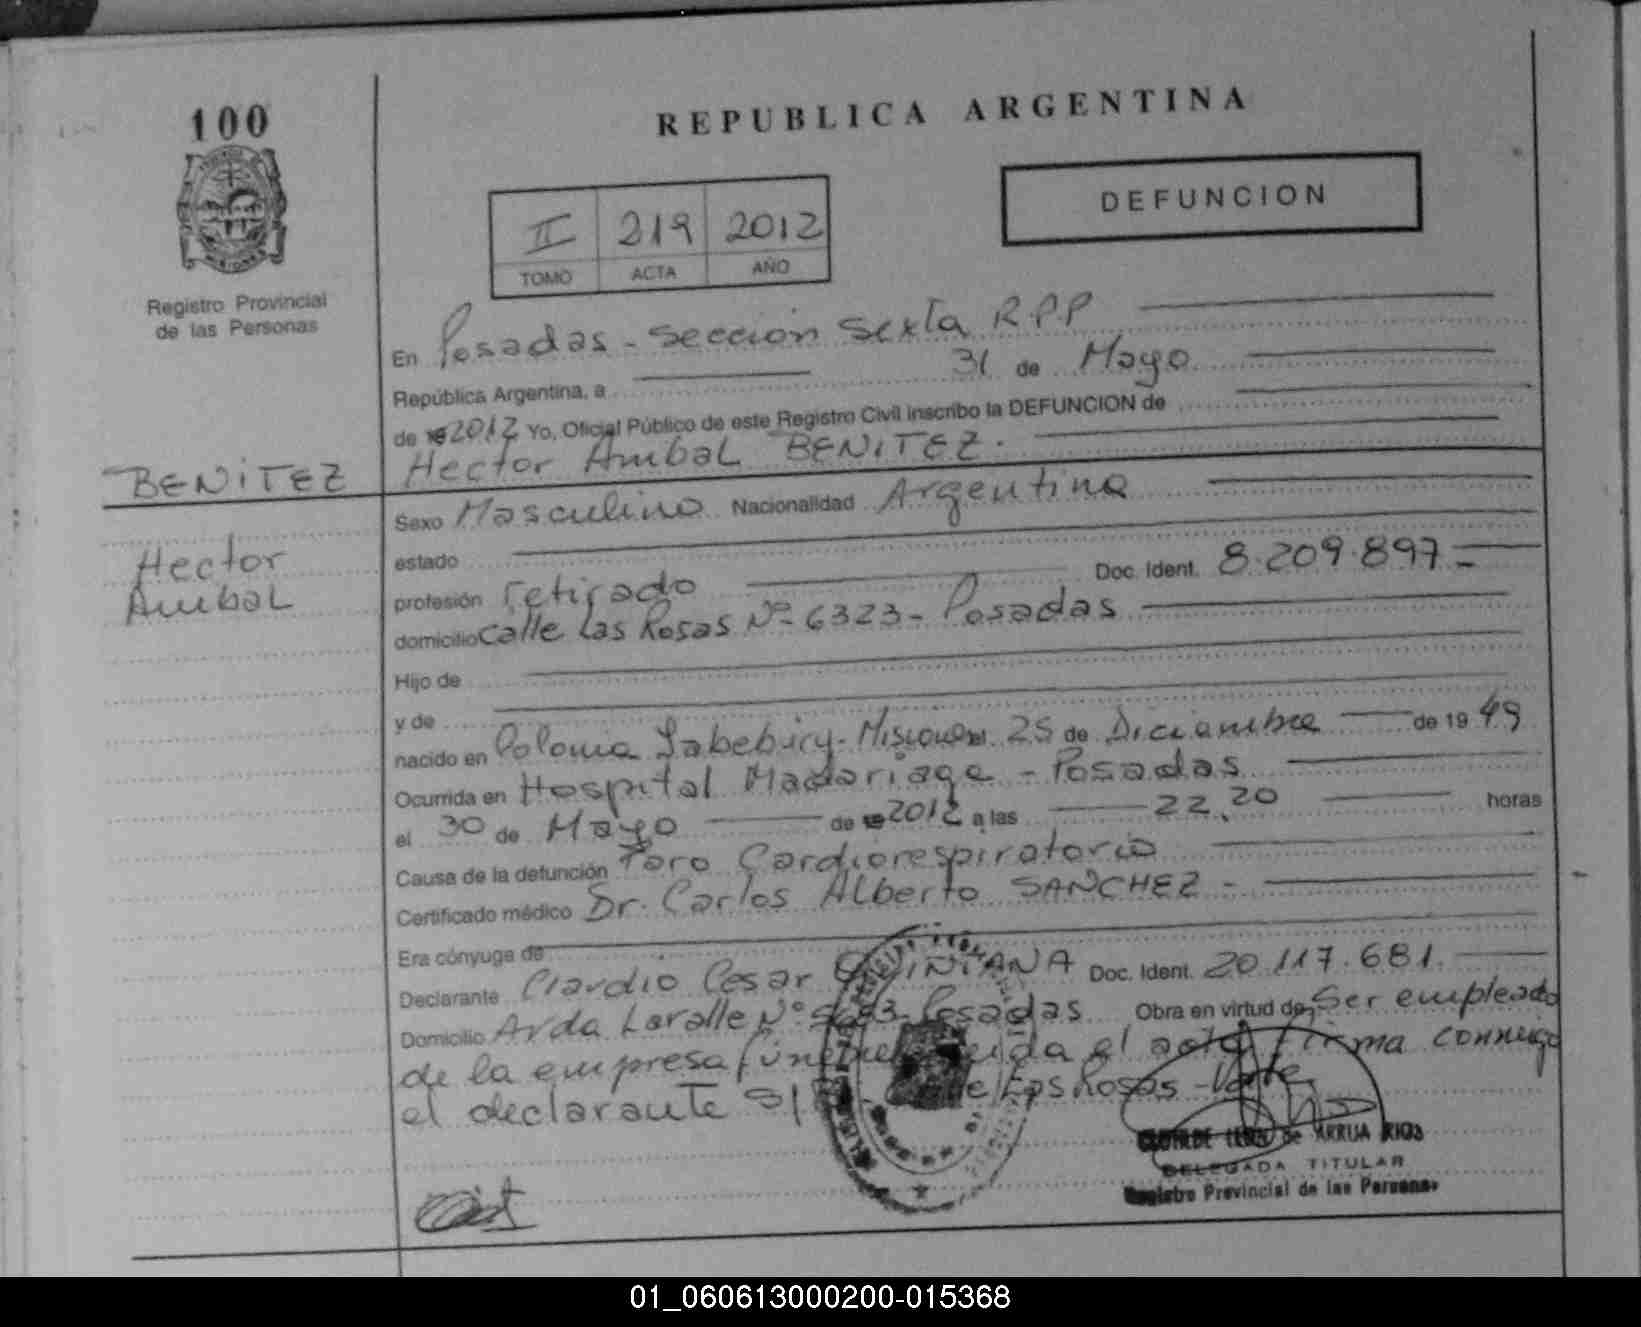 100
REPUBLICA ARGENTINA
DEFUNCION
II 219 2012
TOMO ACTA AÑO
Registro Provincial
de las Personas
En Posadas - Sección Sexta RPP
República Argentina, a 31 de Mayo
de 19 2012 Yo, Oficial Público de este Registro Civil inscribo la DEFUNCION de
Hector Anibal BENITEZ.
BENITEZ
Hector
Anibal
Sexo Masculino Nacionalidad Argentina
estado
profesión retirado Doc. Ident. 8.209.897-
domicilio Calle Las Rosas Nº 6323- Posadas
Hijo de
y de
nacido en Colonia Yabebiry- Misiones 25 de Diciembre de 19 49
Ocurrida en Hospital Madariaga - Posadas
el 30 de Mayo de 19 2012 a las 22.20 horas
Causa de la defunción Paro Cardiorespiratorio
Certificado médico Dr. Carlos Alberto SANCHEZ -
Era cónyuge de
Declarante Claudio Cesar QUINTANA Doc. Ident. 20.117.681.
Domicilio Avda Lavalle Nº Posadas Obra en virtud de Ser empleado
de la empresa el acta firma conmigo
el declarante Las Rosas - Vale
de ARRUA RIOS
DELEGADA TITULAR
Registro Provincial de las Personas
01_060613000200-015368